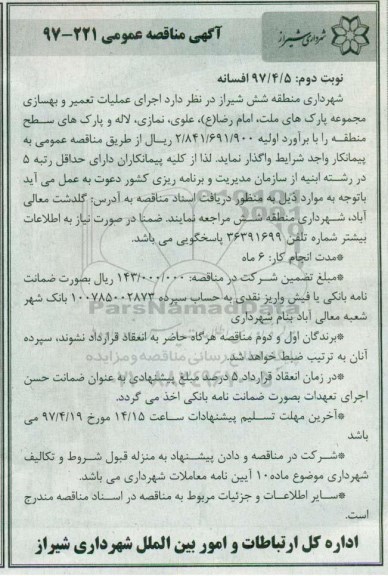 شهرداری شیراز
آگهی مناقصه عمومی ۲۲۱-۹۷
نوبت دوم: ۹۷/۴/۵ افسانه
شهرداری منطقه شش شیراز در نظر دارد اجرای عملیات تعمیر و بهسازی
مجموعه پارک های ملت، امام رضا(ع)، علوی، نمازی، لاله و پارک های سطح
منطقه را با برآورد اولیه ۲/۸۴۱/۶۹۱/۹۰۰ ریال از طریق مناقصه عمومی به
پیمانکار واجد شرایط واگذار نماید. لذا از کلیه پیمانکاران دارای حداقل رتبه ۵
در رشته ابنیه از سازمان مدیریت و برنامه ریزی کشور دعوت به عمل می آید
باتوجه به موارد ذیل به منظور دریافت اسناد مناقصه به آدرس: گلدشت معالی
آباد، شهرداری منطقه شش مراجعه نمایند. ضمنا در صورت نیاز به اطلاعات
بیشتر شماره تلفن ۳۶۳۹۱۶۹۹ پاسخگویی می باشد.
*مدت انجام کار: ۶ ماه
*مبلغ تضمین شرکت در مناقصه: ۱۴۳/۰۰۰/۰۰۰ ریال بصورت ضمانت
نامه بانکی یا فیش واریز نقدی به حساب سپرده ۱۰۰۷۸۵۰۰۲۸۷۳ بانک شهر
شعبه معالی آباد بنام شهرداری
*برندگان اول و دوم مناقصه هرگاه حاضر به انعقاد قرارداد نشوند، سپرده
آنان به ترتیب ضبط خواهد شد.
*در زمان انعقاد قرارداد ۵ درصد مبلغ پیشنهادی به عنوان ضمانت حسن
اجرای تعهدات بصورت ضمانت نامه بانکی اخذ می گردد.
*آخرین مهلت تسلیم پیشنهادات ساعت ۱۴/۱۵ مورخ ۹۷/۴/۱۹ می
باشد
*شرکت در مناقصه و دادن پیشنهاد به منزله قبول شروط و تکالیف
شهرداری موضوع ماده۱۰ آیین نامه معاملات شهرداری می باشد.
*سایر اطلاعات و جزئیات مربوط به مناقصه در اسناد مناقصه مندرج
است.
اداره کل ارتباطات و امور بین الملل شهرداری شیراز
ParsNamadData